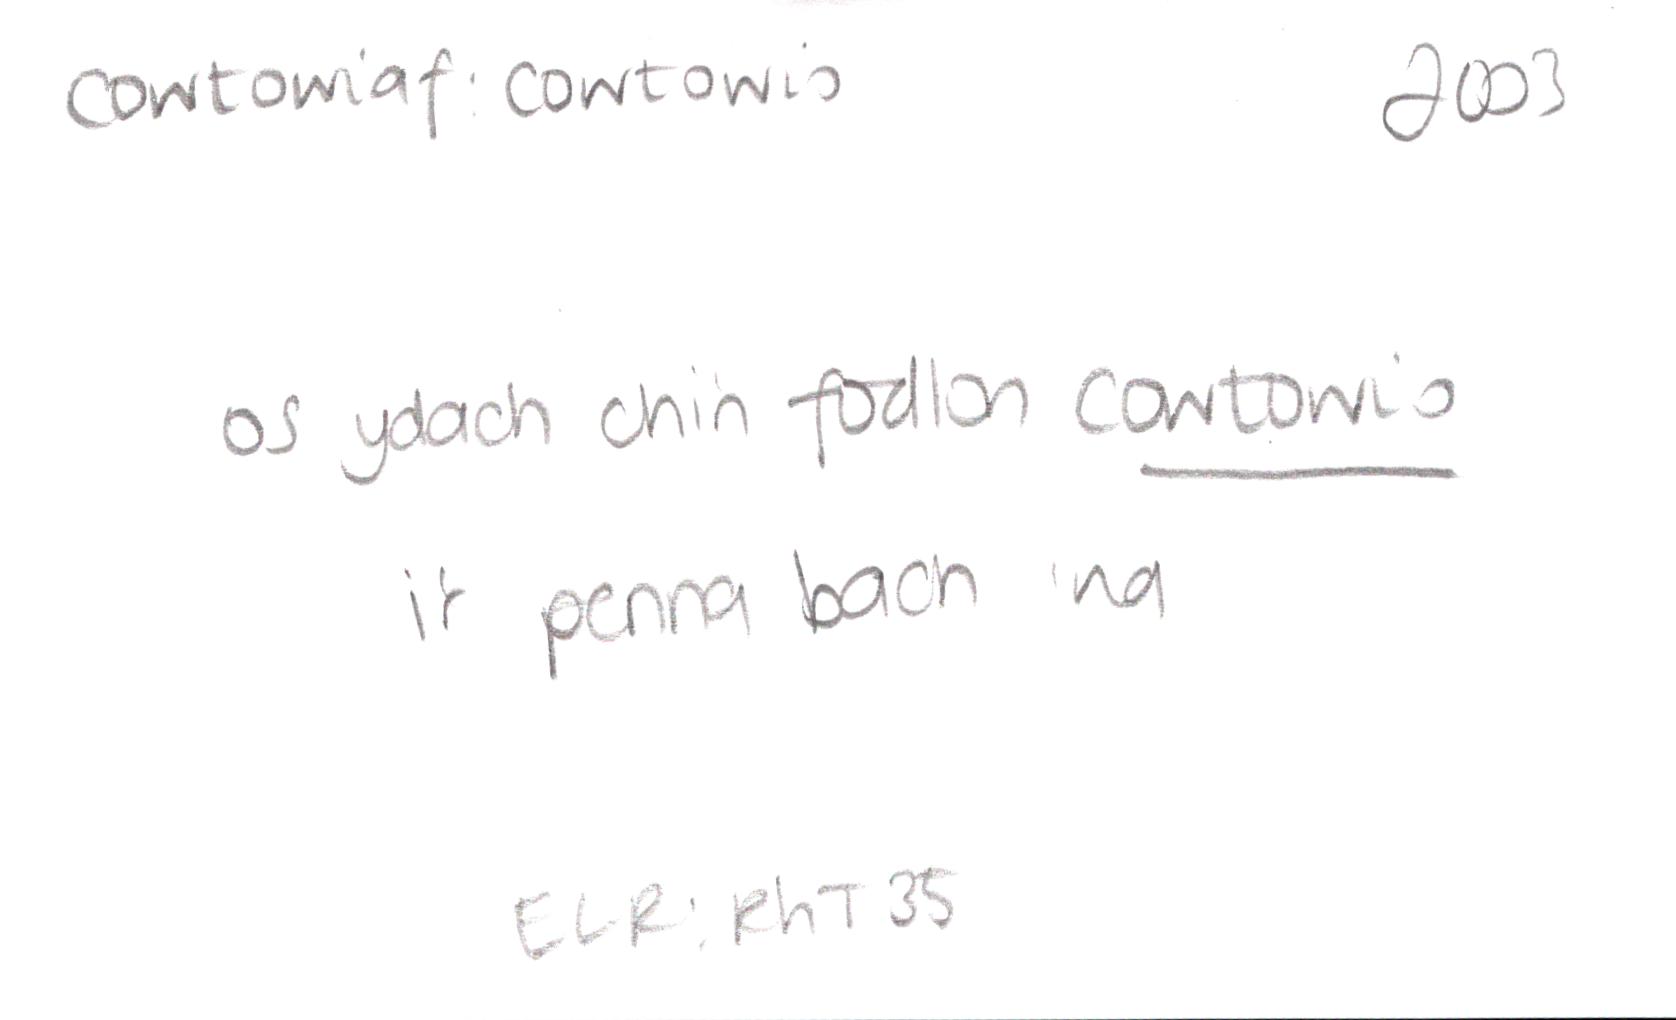 cowtowiaf: cowtowio 2003
os ydach chin fodlon cowtowio
ir penna bach 'na
ELR; RhT 35